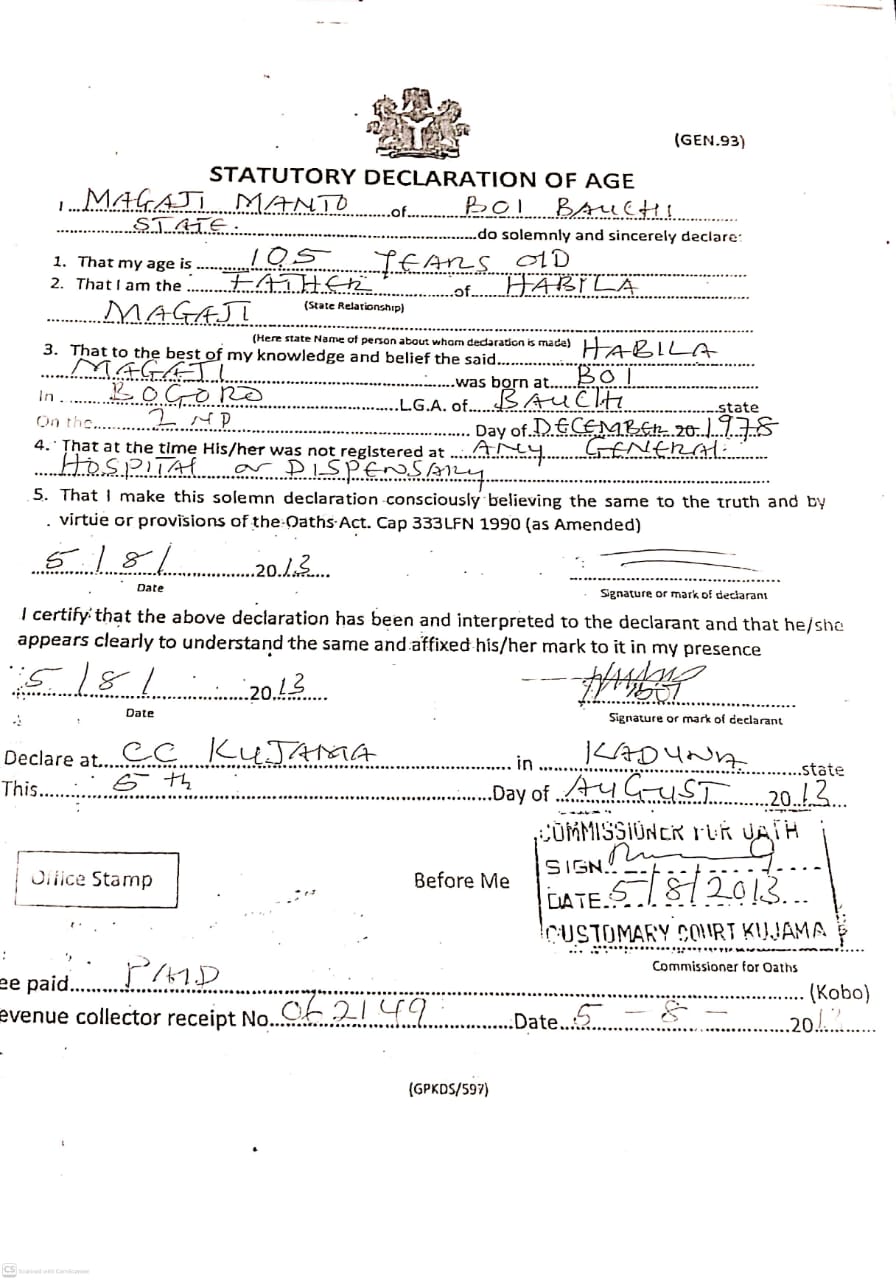 (GEN.93)
STATUTORY DECLARATION OF AGE
I..MAGAJI MANTO......of......BOI BAUCHI
STATE...............do solemnly and sincerely declare:
1. That my age is ......105 YEARS OLD
2. That I am the ......FATHER......of......HABILA
MAGAJI (State Relationship)
(Here state Name of person about whom declaration is made)
3. That to the best of my knowledge and belief the said......HABILA
MAGAJI......was born at..BOI
In ......BOGORO......L.G.A. of......BAUCHI......state
On the......2ND......Day of.DECEMBER 20 1978
4. That at the time His/her was not registered at ...ANY GENERAL.
HOSPITAL or DISPENSARY
5. That I make this solemn declaration consciously believing the same to the truth and by
virtue or provisions of the Oaths Act. Cap 333LFN 1990 (as Amended)
5/8/......2013
Date
Signature or mark of declarant
I certify that the above declaration has been and interpreted to the declarant and that he/she
appears clearly to understand the same and affixed his/her mark to it in my presence
5/8/......2013
Date
Signature or mark of declarant
Declare at..CC KUJAMA......in......KADUNA......state
This......5th......Day of..AUGUST..2013
COMMISSIONER FOR OATH
SIGN
Office Stamp
Before Me
DATE..5/8/2013...
CUSTOMARY COURT KUJAMA
Commissioner for Oaths
ee paid......PAID......(Kobo)
evenue collector receipt No.........Date..5 - 8 -......201
(GPKDS/597)
CS Scanned with CamScanner